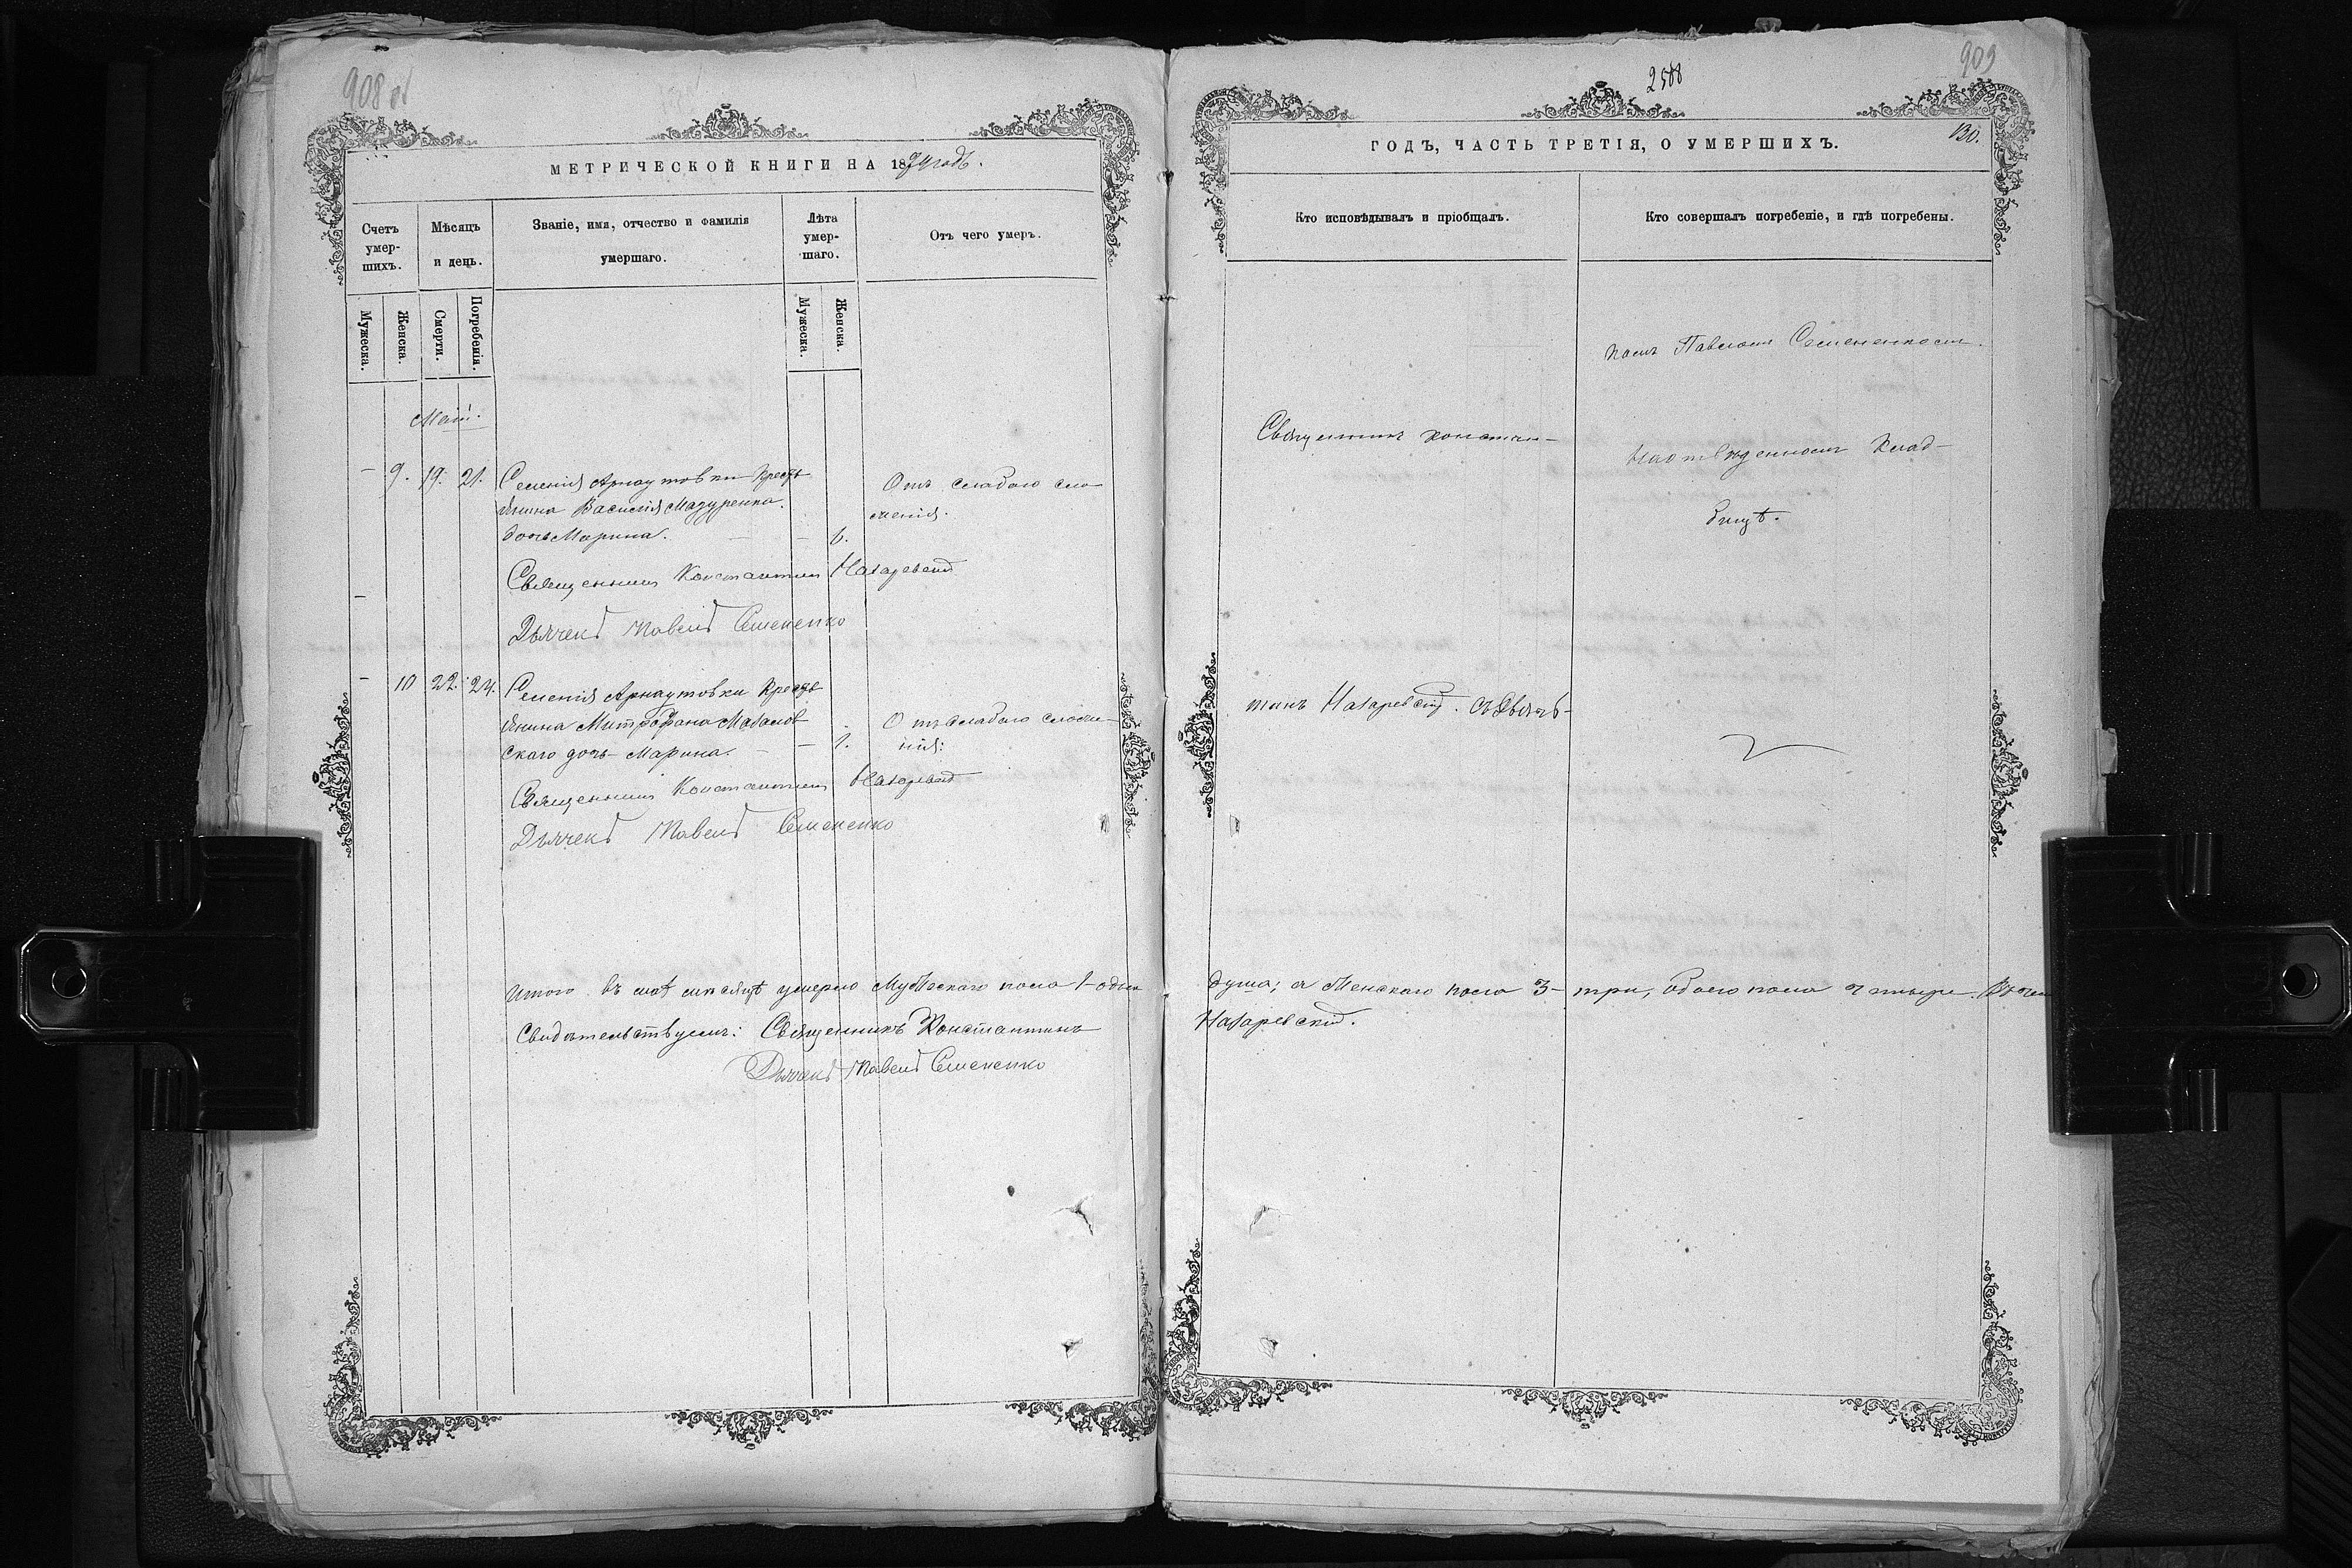 908 об
МЕТРИЧЕСКОЙ КНИГИ НА 1874 годъ.
Счетъ умершихъ.
Мѣсяцъ и день.
Званіе, имя, отчество и фамилія умершаго.
Лѣта умершаго.
Отъ чего умеръ.
Мужеска.
Женска.
Смерти.
Погребенія.
Мужеска.
Женска.
Май.
- 9. 19. 21. Селенія Арнаутовки Кресть
янина Василія Мазуренка.
дочь Марина. - - 6.
Отъ слабаго сло
женія.
Священникъ Константинъ Назаревскій
-
Дьячекъ Павелъ Семененко
- 10 22. 24. Селенія Арнаутовки Кресть
янина Митрофана Мазанов
скаго дочь Марина. - - 1.
Отъ слабаго сложе-
нія:
Священникъ Константинъ Назаревскій
Дьячекъ Павелъ Семененко
Итого въ маѣ мѣсяцѣ умерло Мужескаго пола 1-одна
Свидѣтельствуемъ: Священникъ Константинъ
Дьячекъ Павелъ Семененко
909
2588
130.
ГОДЪ, ЧАСТЬ ТРЕТІЯ, О УМЕРШИХЪ.
Кто исповѣдывалъ и пріобщалъ.
Кто совершалъ погребеніе, и гдѣ погребены.
комъ Павломъ Семененкомъ.
Священникъ Констан-
На отведенномъ Клад-
бищѣ.
тинъ Назаревскій. съ Дьяч-
душа; а Женскаго пола 3-три, обоего пола четыре.
Назаревскій.